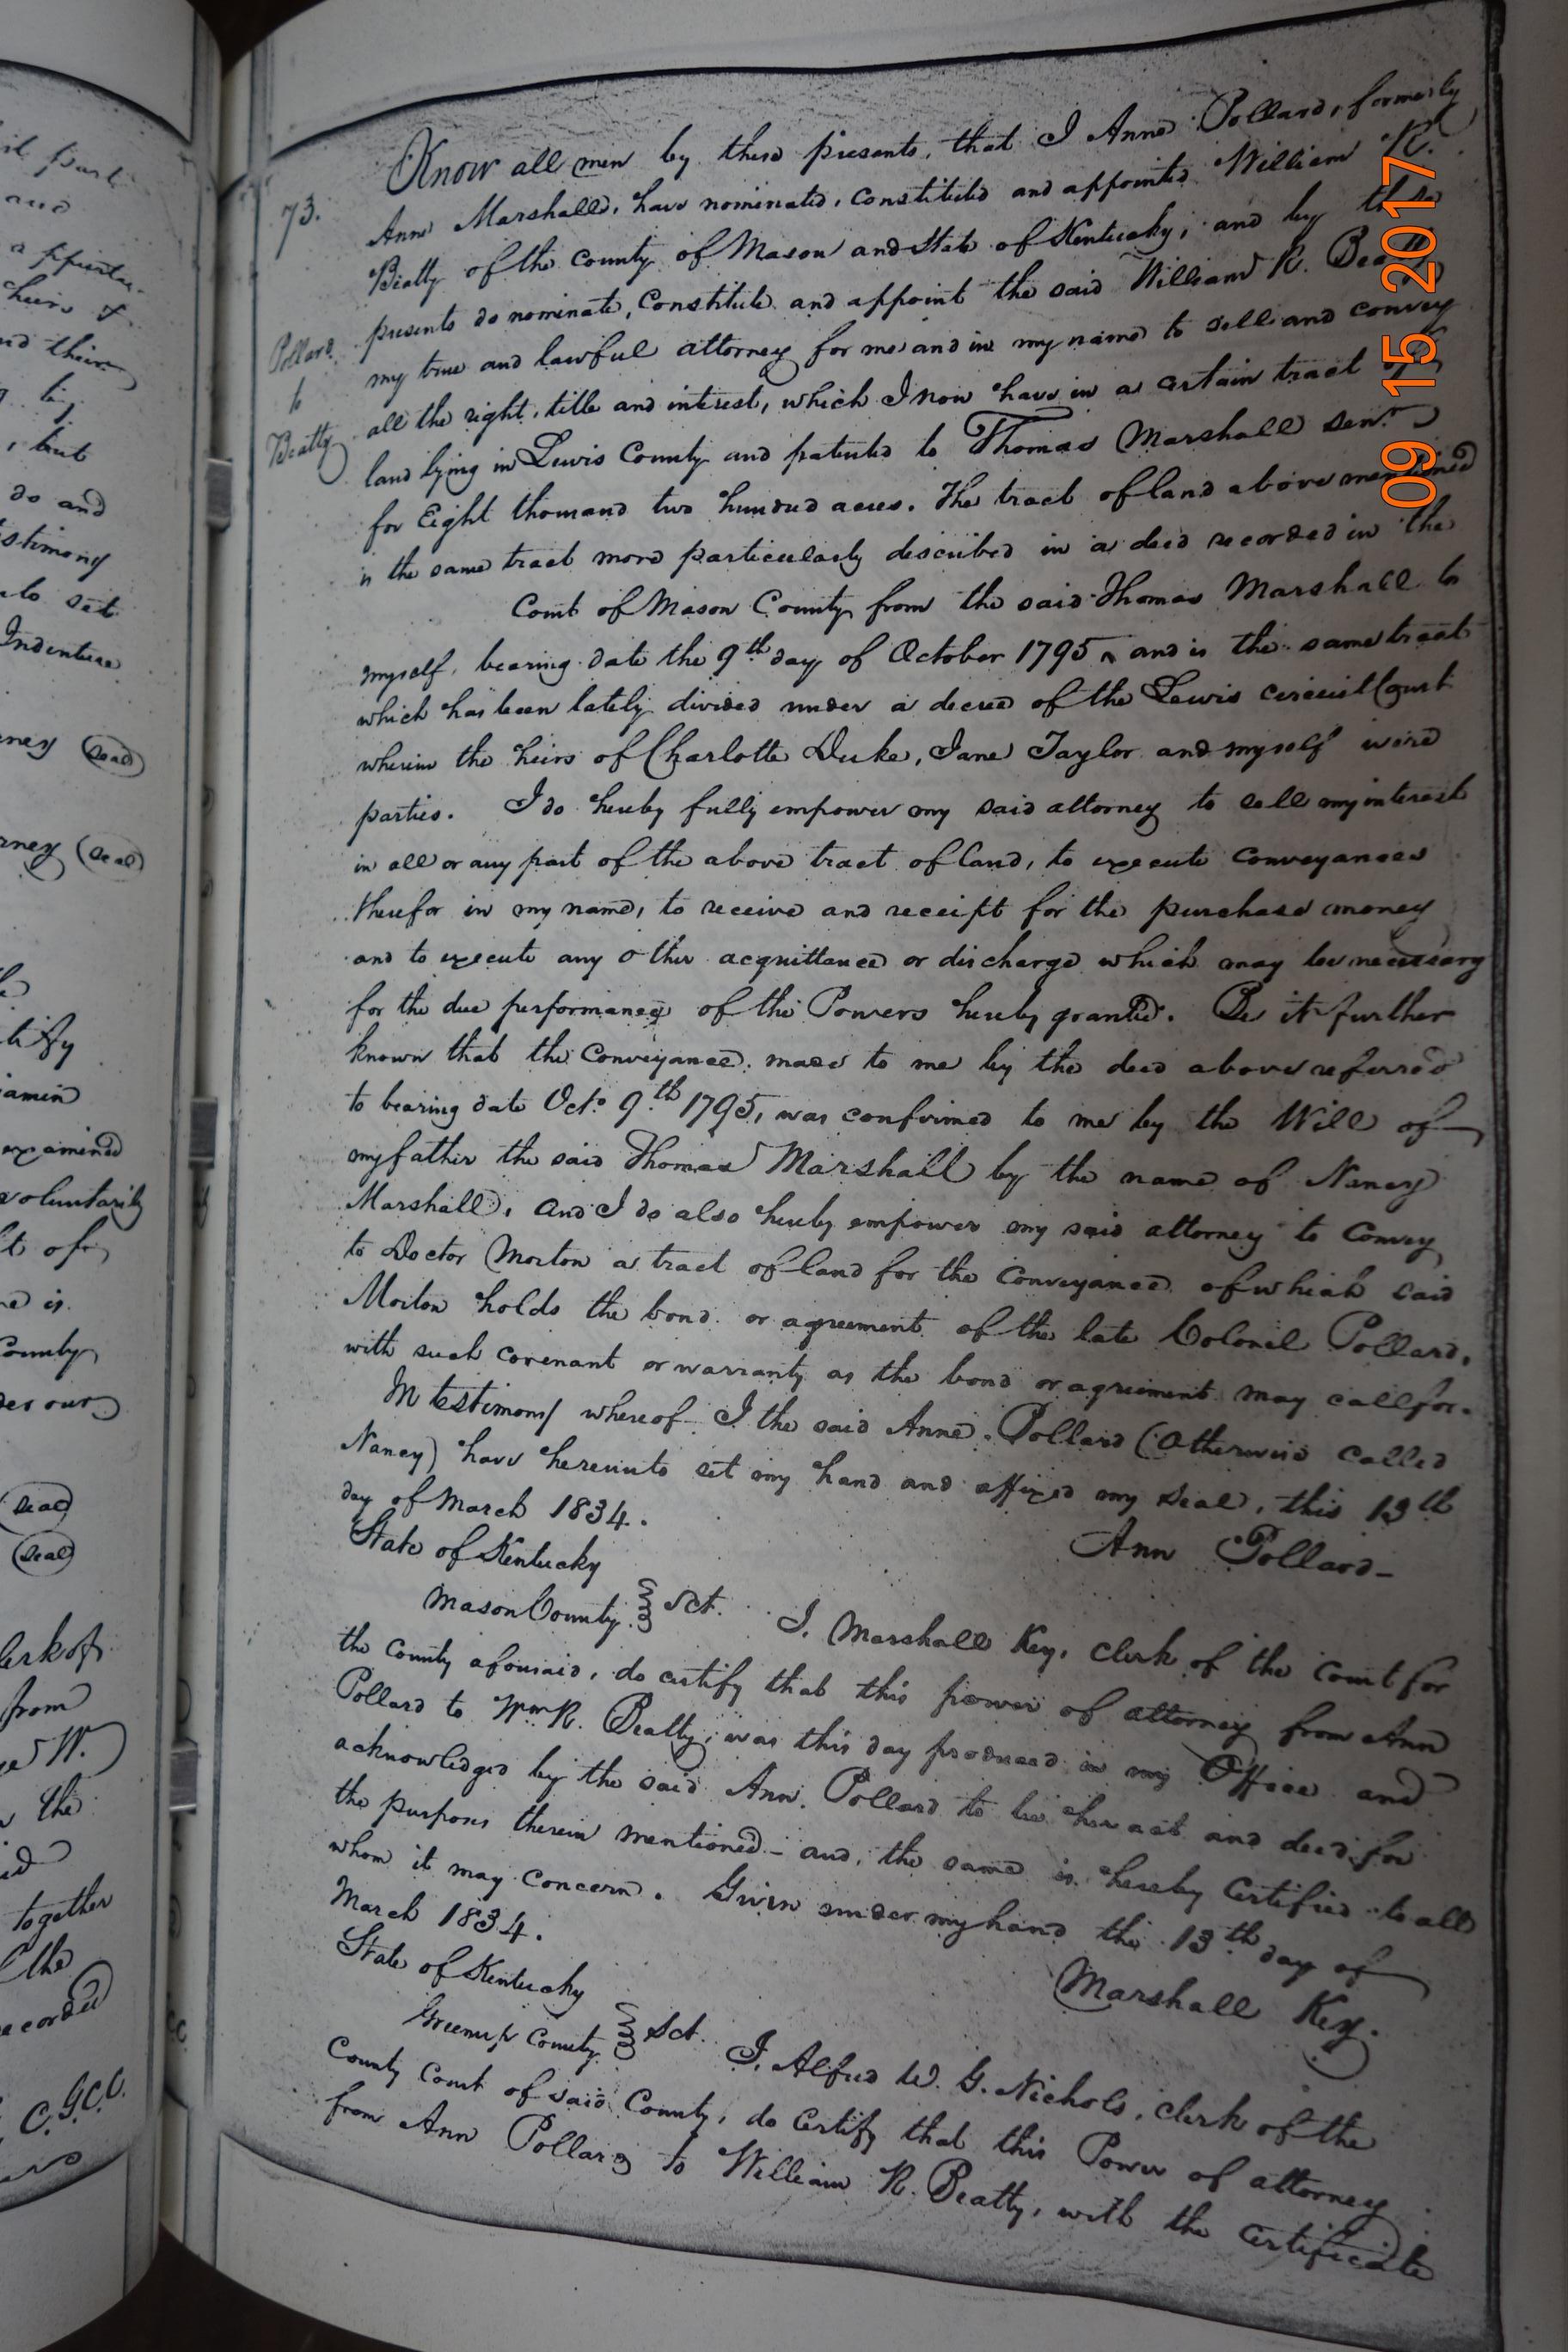 Know all men by these presents, that I Anne Pollard, formerly
73.
Anne Marshall, have nominated, constituted and appointed William R.
Beatty of the County of Mason and State of Kentucky; and by these
presents do nominate, Constitute and appoint the said William R. Beatty
Pollard
to
Beatty
my true and lawful attorney for me and in my name to sell and convey
all the right, title and interest, which I now have in a certain tract of
land lying in Lewis County and patented to Thomas Marshall Senr.
for Eight thousand two hundred acres. The tract of land above mentioned
is the same tract more particularly described in a deed recorded in the
Court of Mason County from the said Thomas Marshall to
myself, bearing date the 9th day of October 1795, and is the same tract
which has been lately divided under a decree of the Lewis circuit Court
wherein the heirs of Charlotte Duke, Jane Taylor and myself were
parties. I do hereby fully empower my said attorney to sell my interest
in all or any part of the above tract of land, to execute conveyances
therefor in my name, to receive and receipt for the purchase money
and to execute any other acquittance or discharge which may be necessary
for the due performance of the Powers hereby granted. Be it further
known that the Conveyance made to me by the deed above referred
to bearing date Octo. 9th 1795, was confirmed to me by the Will of
my father the said Thomas Marshall by the name of Nancy
Marshall, and I do also hereby empower my said attorney to Convey
to Doctor Morton a tract of land for the Conveyance of which said
Morton holds the bond or agreement of the late Colonel Pollard,
with such covenant or warranty as the bond or agreement may call for.
In testimony whereof I the said Anne Pollard (Otherwise called
Nancy) have hereunto set my hand and affixed my seal, this 13th
day of March 1834.
Ann Pollard
State of Kentucky
Mason County Sct. I, Marshall Key, Clerk of the Court for
the County aforesaid, do certify that this power of attorney from Ann
Pollard to Wm R. Beatty, was this day produced in my Office and
acknowledged by the said Ann Pollard to be her act and deed for
the purposes therein mentioned - and, the same is hereby Certified to all
whom it may concern. Given under my hand the 13th day of
March 1834.
Marshall Key.
State of Kentucky
Greenup County Sct. I, Alfred W. G. Nichols, clerk of the
County Court of said County, do certify that this Power of attorney
from Ann Pollard to William R. Beatty, with the certificate
09 15 2017
part
and
appurte-
heirs &
their
but
do and
stimony
set
Indenture
ney (Seal)
rney (Seal)
tify
jamin
examined
voluntarily
of
is
County
our
(Seal)
(Seal)
lerk of
from
W.
the
together
the
recorded